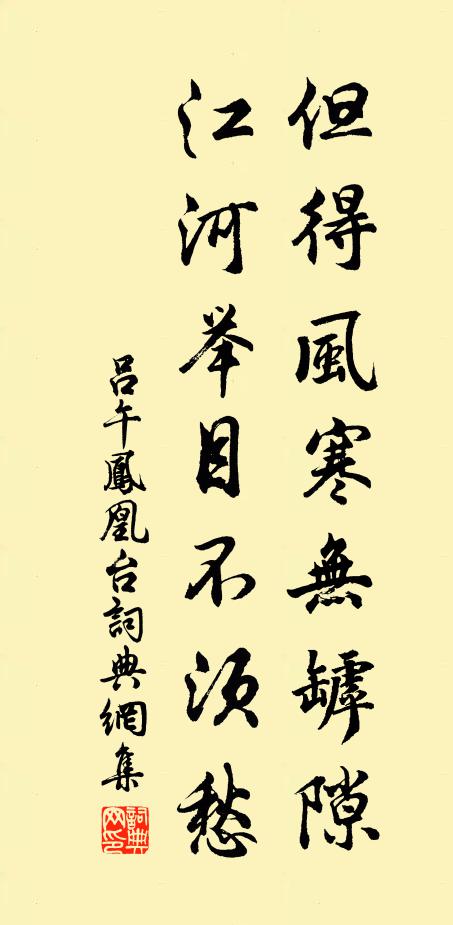 但得風寒無罅隙
江河举目不须愁
吕午鳳凰台詞典網集
詞典網印